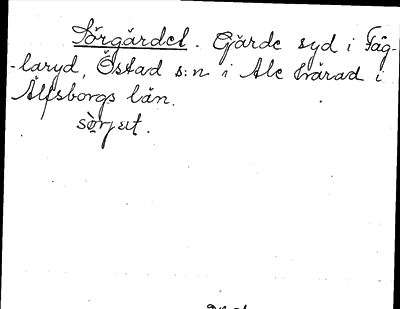 Sörgärdet. Gärde syd i Täg-
-laryd, Östad s:n i Ale härad i
Älfsborgs län.